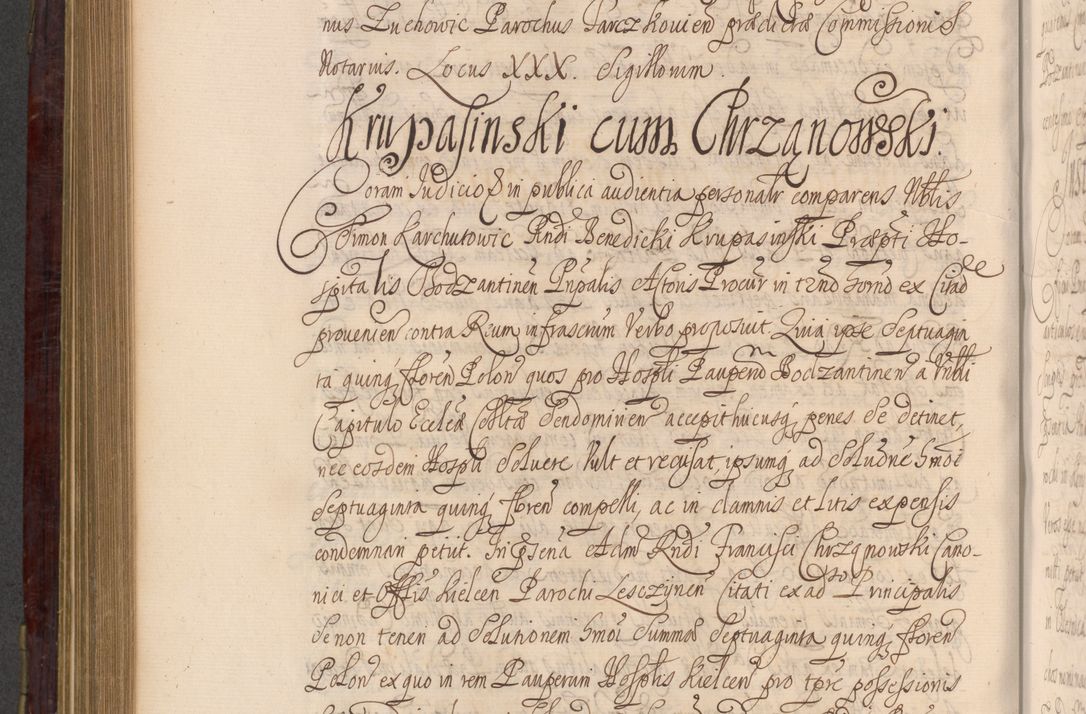 nus Zuchowic Parochus Parczkovien prædictæ Commissionis
Notarius. Locus XXX. Sigillorum.
Krupasinski cum Chrząnowski.
Coram Judicio in publica audientia personalr comparens Nblis
Simon Karchutowic Rndi Benedicti Krupasinski Præpti Ho-
spitalis Bodzantinen Prıpalis Actoris Procur in tno ex Citāde
provenien contra Reum infrascrum Verbo proposuit. Quia ipse Septuagin
ta quinq floren Polon quos pro Hospli Pauperum Bodzantinen a Vnbli
Capitulo Ecclæ Colltæ Sendomirien accepit hucusq penes Se detinet,
nec eosdem Hospli Solvere Vult et recusat, ipsumq ad Soludne Smoi
Septuaginta quinq floren compelli, ac in damnis et litis expensis
condemnari petiit. In psena Adm Rndi Francisci Chrząnowski Cano-
nici et Offlis Kielcen Parochi Lesczÿnen Citati ex ad Principalis
Se non tenen ad Solutionem Smoi Summæ Septuaginta quinq floren
Polon ex quo in rem Pauperum Hosplis Kielcen pro tpre possessionis